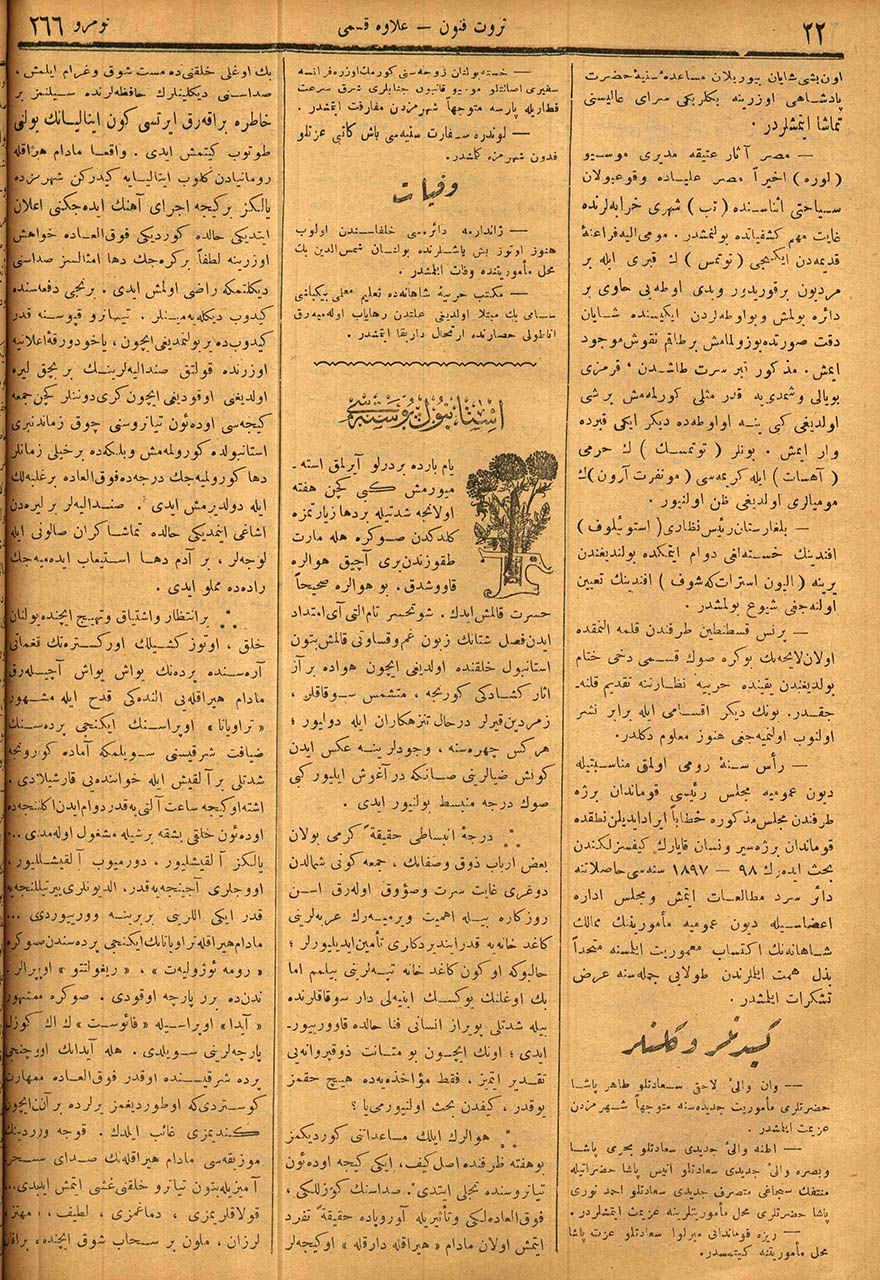 ٢٢
ثروت فنون — علاوه قسمى
نومرو ٢٦٦
اون بشى شايان بيوريلان مساعدۀ سنيۀ حضرت
پادشاهى اوزرينه بكلربكى سراى عاليسنى
تماشا ايتمشلردر .
— مصر آثار عتيقه مديرى موسيو
(لوره) اخيراً مصر علياده وقوعبولان
سياحتى اثناسنده (تب) شهرى خرابه‌لرنده
غايت مهم كشفياتده بولنمشدر . مومى اليه فراعنۀ
قديمه‌دن ايكنجى (توتمس) ك قبرى ايله بر
مرديون بر قوريدور ويدى اوطه‌يى حاوى بر
دائره بولمش وبو اوطه‌لردن ايكيسنده شايان
دقت صورتده بوزولمامش برطاقم نقوش موجود
ايمش . مذكور نبر سرت طاشدن ، قرمزى
بويالى وشمدى‌يه قدر مثلى كورلمه‌مش برشى
اولديغى كبى ينه او اوطه‌ده ديكر ايكى قبرده
وار ايمش . بونلر (توتمسك) ك حرمى
(آهسات) ايله كريمه‌سى (مونفرت آرون) ك
موميالرى اولديغى ظن اولنيور .
— بلغارستان رئيس نظارى (استوئيلوف)
افندينك خسته‌لغى دوام ايتمكده بولنديغندن
يرينه (اليون استرات‌كه‌شوف) افندينك تعيين
اولنه‌جغى شيوع بولمشدر .
— پرنس قسطنطين طرفندن قلمه النمقده
اولان لايحه‌نك بو كره صوك قسمى دخى ختام
بولديغندن يقينده حربيه نظارتنه تقديم قلنه‌
جقدر . بونك ديكر اقسامى ايله برابر نشر
اولنوب اولنميه‌جغى هنوز معلوم دكلدر .
— رأس سنۀ رومى اولمق مناسبتيله
ديون عموميه مجلس رئيسى قوماندان برژه
طرفندن مجلس مذكوره خطاباً ايراد ايديلن نطقده
قوماندان برژه سير ونسان قايارك كيفسزلكندن
بحث ايده‌رك ٩٨ — ١٨٩٧ سنه‌سى حاصلاتنه
دائر سرد مطالعات ايتمش ومجلس اداره
اعضاسيله ديون عموميه مأمورينك ممالك
شاهانه‌نك اكتساب معموريت ايلمسنه متحداً
بذل همت ايتملرندن طولايى جمله‌سنه عرض
تشكرات ايلمشدر .
كيدنلر وكلنلر
— وان والئ لاحقى سعادتلو طاهر پاشا
حضرتلرى مأموريت جديده‌سنه متوجهاً شهرمزدن
عزيمت ايلمشدر .
— اطنه والئ جديدى سعادتلو بحرى پاشا
وبصره والئ جديدى سعادتلو انيس پاشا حضراتيله
منتفك سنجاغى متصرف جديدى سعادتلو احمد نورى
پاشا حضرتلرى محل مأموريتلرينه عزيمت ايتمشلردر .
— ريزه قوماندانى ميرلوا سعادتلو عزت پاشا
محل مأموريتنه كيتمشدر .
— خسته بولنان زوجه‌سنى كورمك اوزره فرانسه
سفيرى اصالتلو موسيو قانبون جنابلرى شرق سرعت
قطاريله پارسه متوجهاً شهرمزدن مفارقت ايتمشدر .
— لوندره سفارت سنيه‌سى باش كاتبى عزتلو
فدون شهرمزه كلمشدر .
وفيات
— ژاندارمه دائره‌سى خلفاسندن اولوب
هنوز اوتوز بش ياشلرنده بولنان شمس الدين بك
محل مأموريتنده وفات ايلمشدر .
— مكتب حربيۀ شاهانه‌ده تعليم معلمى بيكباشى
سامى بك مبتلا اولديغى علتدن رهاياب اوله‌ميه‌رق
اناطولى حصارنده ارتحال داربقا ايتمشدر .
استانبول پوسته‌سى
يام يارده بردرلو آيرلمق استه‌
ميورمش كبى كچن هفته
اولانجه شدتيله بر دها زيارتمزه
كلدكدن صوكره هله مارت
طقوزندن برى آچيق هوالره
قاووشدق . بو هوالره صحيحاً
حسرت قالمش ايدك . شو نحسر تام التى آى امتداد
ايدن فصل شتانك زبون غم وقساوتى قالمش بتون
استانبول خلقنده اولديغى ايچون هواده بر آز
اثار كشادكى كورنجه ، متشمس سوقاقلر ،
زمردين قيرلر درحال تنزهكاران ايله دولييور ؛
هركس چهره‌سنه ، وجودلرينه عكس ايدن
كونش ضيالرينى صانكه در آغوش ايليور كبى
صوك درجه منبسط بولنيور ايدى .
درجۀ انبساطى حقيقةً كرمى بولان
بعض ارباب ذوق وصفانك ، جمعه كونى شمالدن
دوغرى غايت سرت وصوؤق اوله‌رق اسن
روزكاره بيله اهميت ويرميه‌رك عربه‌لرينى
كاغد خانه‌يه قدر ايندير دكارى تأمين ايديليورلر ؛
حالبوكه او كون كاغد خانه تپه‌لرينى بيلمم اما
بك اوغلنك يوكسك ابنيه‌لى دار سوقاقلرنده
بيله شدتلى پويراز انسانى فنا حالده قاوورييور‌
ايدى ؛ اونك ايچون بو متانت ذوقپروانه‌يى
تقدير ايتمز ، فقط مؤاخذه‌يه‌ده هيچ حقمز
يوقدر ، كيفدن بحث اولنيورمى يا ؟
هوالرك ايلك مساعداتنى كورديكمز
بو هفته ظرفنده اصل كيف ، ايكى كيجه اوده‌ئون
تياتروسنده تجلى ايتدى . صداسنك كوزللكى ،
فوق العاده‌لكى وتأثيريله آوروپاده حقيقةً تفرد
ايتمش اولان مادام «هيراقله دارقله» او كيجه‌لر
بك اوغلى خلقنى‌ده مست شوق وغرام ايلمش ،
صداسنى ديكلينلرك حافظه‌لرنده سيلنمز بر
خاطره براقه‌رق ايرتسى كون ايتاليانك يولنى
طوتوب كيتمش ايدى . واقعا مادام هيراقله
رومانيادن كلوب ايتاليايه كيدركن شهرمزده
يالكز بركيجه اجراى آهنك ايده‌جكنى اعلان
ايتديكى حالده كورديكى فوق العاده خواهش
اوزرينه لطفاً بركره‌جك دها امثالسز صداسنى
ديكلتمكه راضى اولمش ايدى . برنجى دفعه‌سنده
كيدوب ديكله‌يه‌مينلر . تياترو قپوسنه قدر
كيدوب‌ده ير بولنمديغى ايچون ، ياخود ورقۀ اعلانيه
اوزرنده قولتق صنداليه‌لرينك بر بچق ليره
اولديغى اوقوديغى ايچون كرى دوننلر كچن جمعه
كيجه‌سى اوده‌ئون تياتروسنى چوق زماندنبرى
استانبولده كورولمه‌مش وبلكه‌ده برخيلى زمانلر
دها كورولميه‌جك درجه‌ده فوق العاده بر غلبه‌لك
ايله دولديرمش ايدى . صنداليه‌لر بر ليره‌دن
اشاغى اينمديكى حالده تماشاكران صالونى ايله
لوجه‌لر ، بر آدم دها استيعاب ايده‌ميه‌جك
راده‌ده مملو ايدى .
بر انتظار واشتياق وتهييج ايچنده بولنان
خلق ، اوتوز كشيلك اوركستره‌نك نغماتى
آره‌سنده پرده‌نك يواش يواش آچيله‌رق
مادام هيراقله‌يى النده‌كى قدح ايله مشهور
«تراوياتا» اوپراسنك ايكنجى پرده‌سنك
ضيافت شرقيسنى سويلمكه آماده كورونجه
شدتلى بر آلقيش ايله خواننده‌يى قارشيلادى .
اشته او كيجه ساعت آلتى‌يه قدر دوام ايدن اكلنجه‌ده
اوده‌ئون خلقى بشقه برشيله مشغول اوله‌مدى ...
يالكز آلقيشليور ، دورميوب آلقيشليور ،
اووجلرى آجينجه‌يه قدر ، الديونلرى ييرتيلنجه‌يه
قدر ايكى اللرينى بربرينه ووريوردى ...
مادام هيراقله تراوياتانك ايكنجى پرده‌سندن صوكره
«رومه ئوژوليه‌ت» ، «ريغولتتو» اوپرالر‌
ندن‌ده برر پارچه اوقودى . صوكره مشهور
«آيدا» اوپراسيله «فائوست» ك اك كوزل
پارچه‌لرينى سويلدى . هله آيدانك اوچنجى
پرده شرقيسنده اوقدر فوق العاده مهارت
كوستردى كه اوطورديغمز يرلرده بر آن ايچون
كنديمزى غائب ايلدك . قوجه ورردينك
موزيقه‌سى مادام هيراقله‌نك صداى سحر
آميزيله بتون تياترو خلقنى غشى ايتمش ايدى...
قولاقلريمزى ، دماغمزى ، لطيف ، مهتز ،
لرزان ، ملون بر سحاب شوق ايچنده براقان